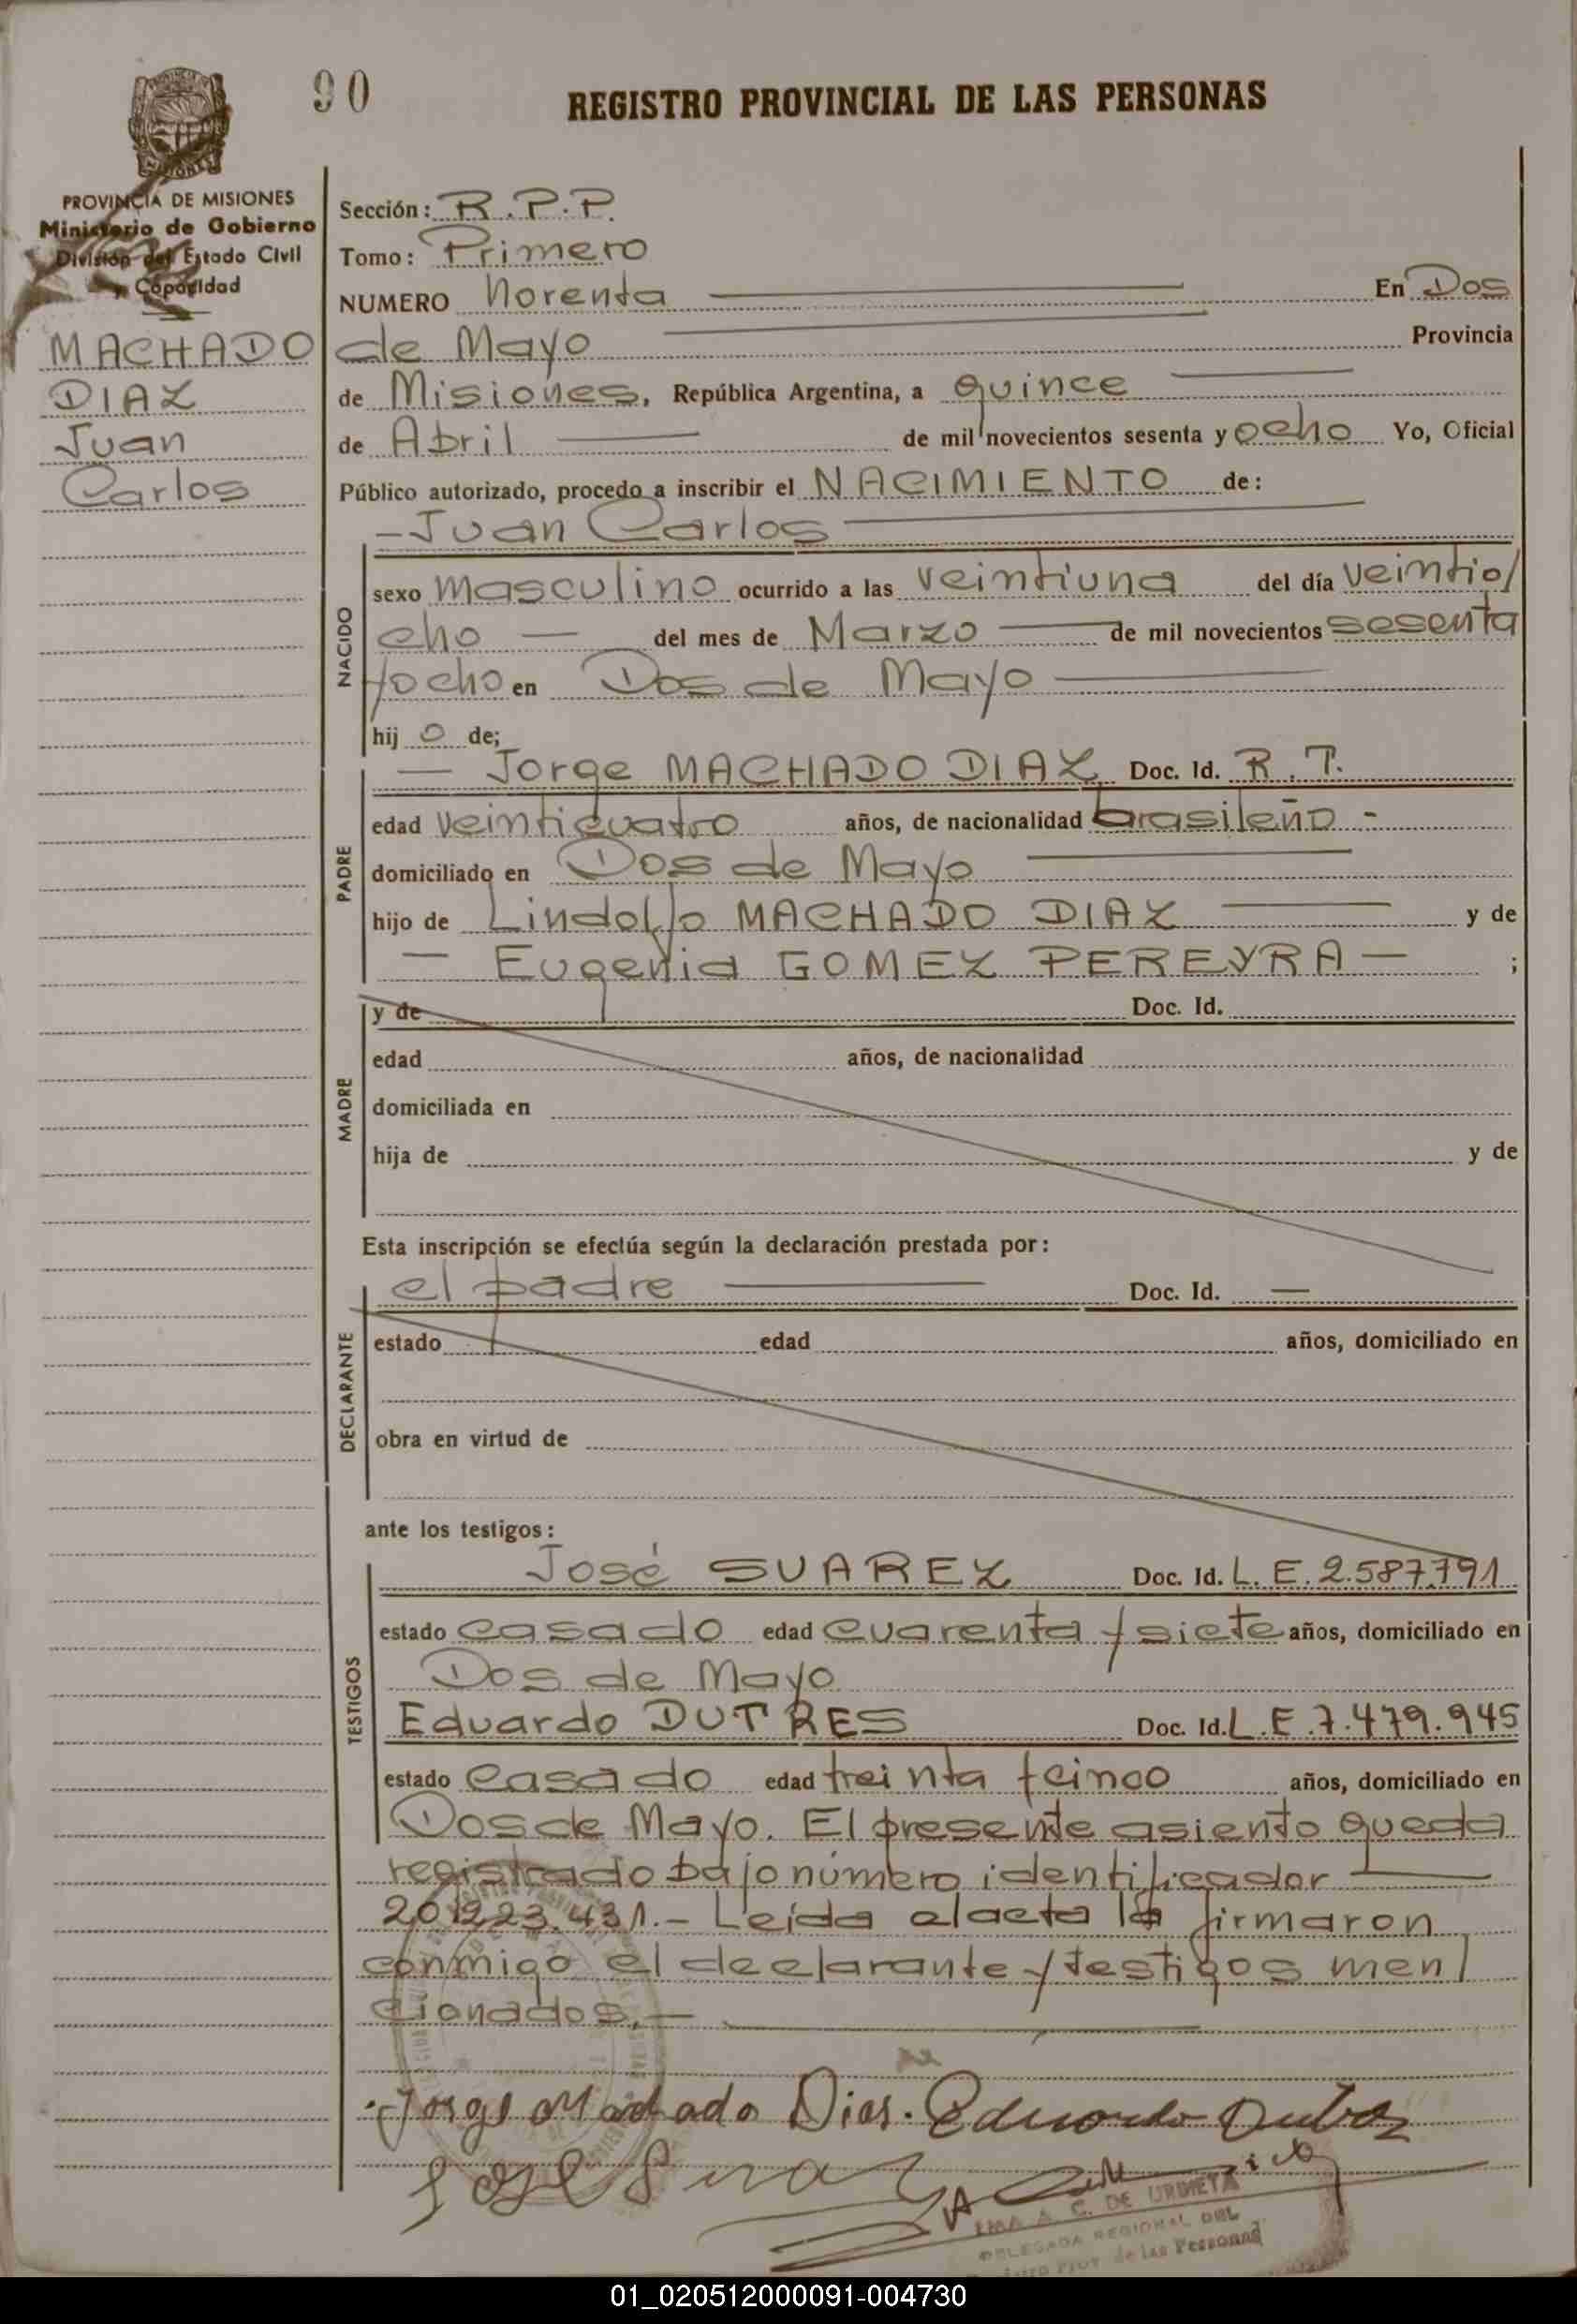 90
REGISTRO PROVINCIAL DE LAS PERSONAS
PROVINCIA DE MISIONES
Ministerio de Gobierno
División del Estado Civil
y Capacidad
MACHADO
DIAZ
Juan
Carlos
Sección: R.P.P.
Tomo: Primero
NUMERO Noventa En Dos
de Mayo Provincia
de Misiones, República Argentina, a quince
de Abril de mil novecientos sesenta y ocho Yo, Oficial
Público autorizado, procedo a inscribir el NACIMIENTO de:
-Juan Carlos
NACIDO
sexo masculino ocurrido a las veintiuna del día veintio/
cho — del mes de Marzo — de mil novecientos sesenta
yocho en Dos de Mayo
hij o de;
PADRE
— Jorge MACHADO DIAZ Doc. Id. R. T.
edad veinticuatro años, de nacionalidad brasileño -
domiciliado en Dos de Mayo
hijo de Lindolfo MACHADO DIAZ y de
— Eugenia GOMEZ PEREYRA — ;
MADRE
y de Doc. Id.
edad años, de nacionalidad
domiciliada en
hija de y de
Esta inscripción se efectúa según la declaración prestada por:
DECLARANTE
el padre Doc. Id. —
estado edad años, domiciliado en
obra en virtud de
ante los testigos:
TESTIGOS
José SUAREZ Doc. Id. L. E. 2.587.791
estado casado edad cuarenta y siete años, domiciliado en
Dos de Mayo
Eduardo DUTRES Doc. Id. L.E.7.479.945
estado casado edad treinta y cinco años, domiciliado en
Dos de Mayo. El presente asiento queda
registrado bajo número identificador
20.223.431.- Leída el acta la firmaron
conmigo el declarante y testigos men/
cionados.—
Jorge Machado Dias. Eduardo
José
A. C. DE URDIETA
DELEGADA REGIONAL DEL
de las Personas
01_020512000091-004730